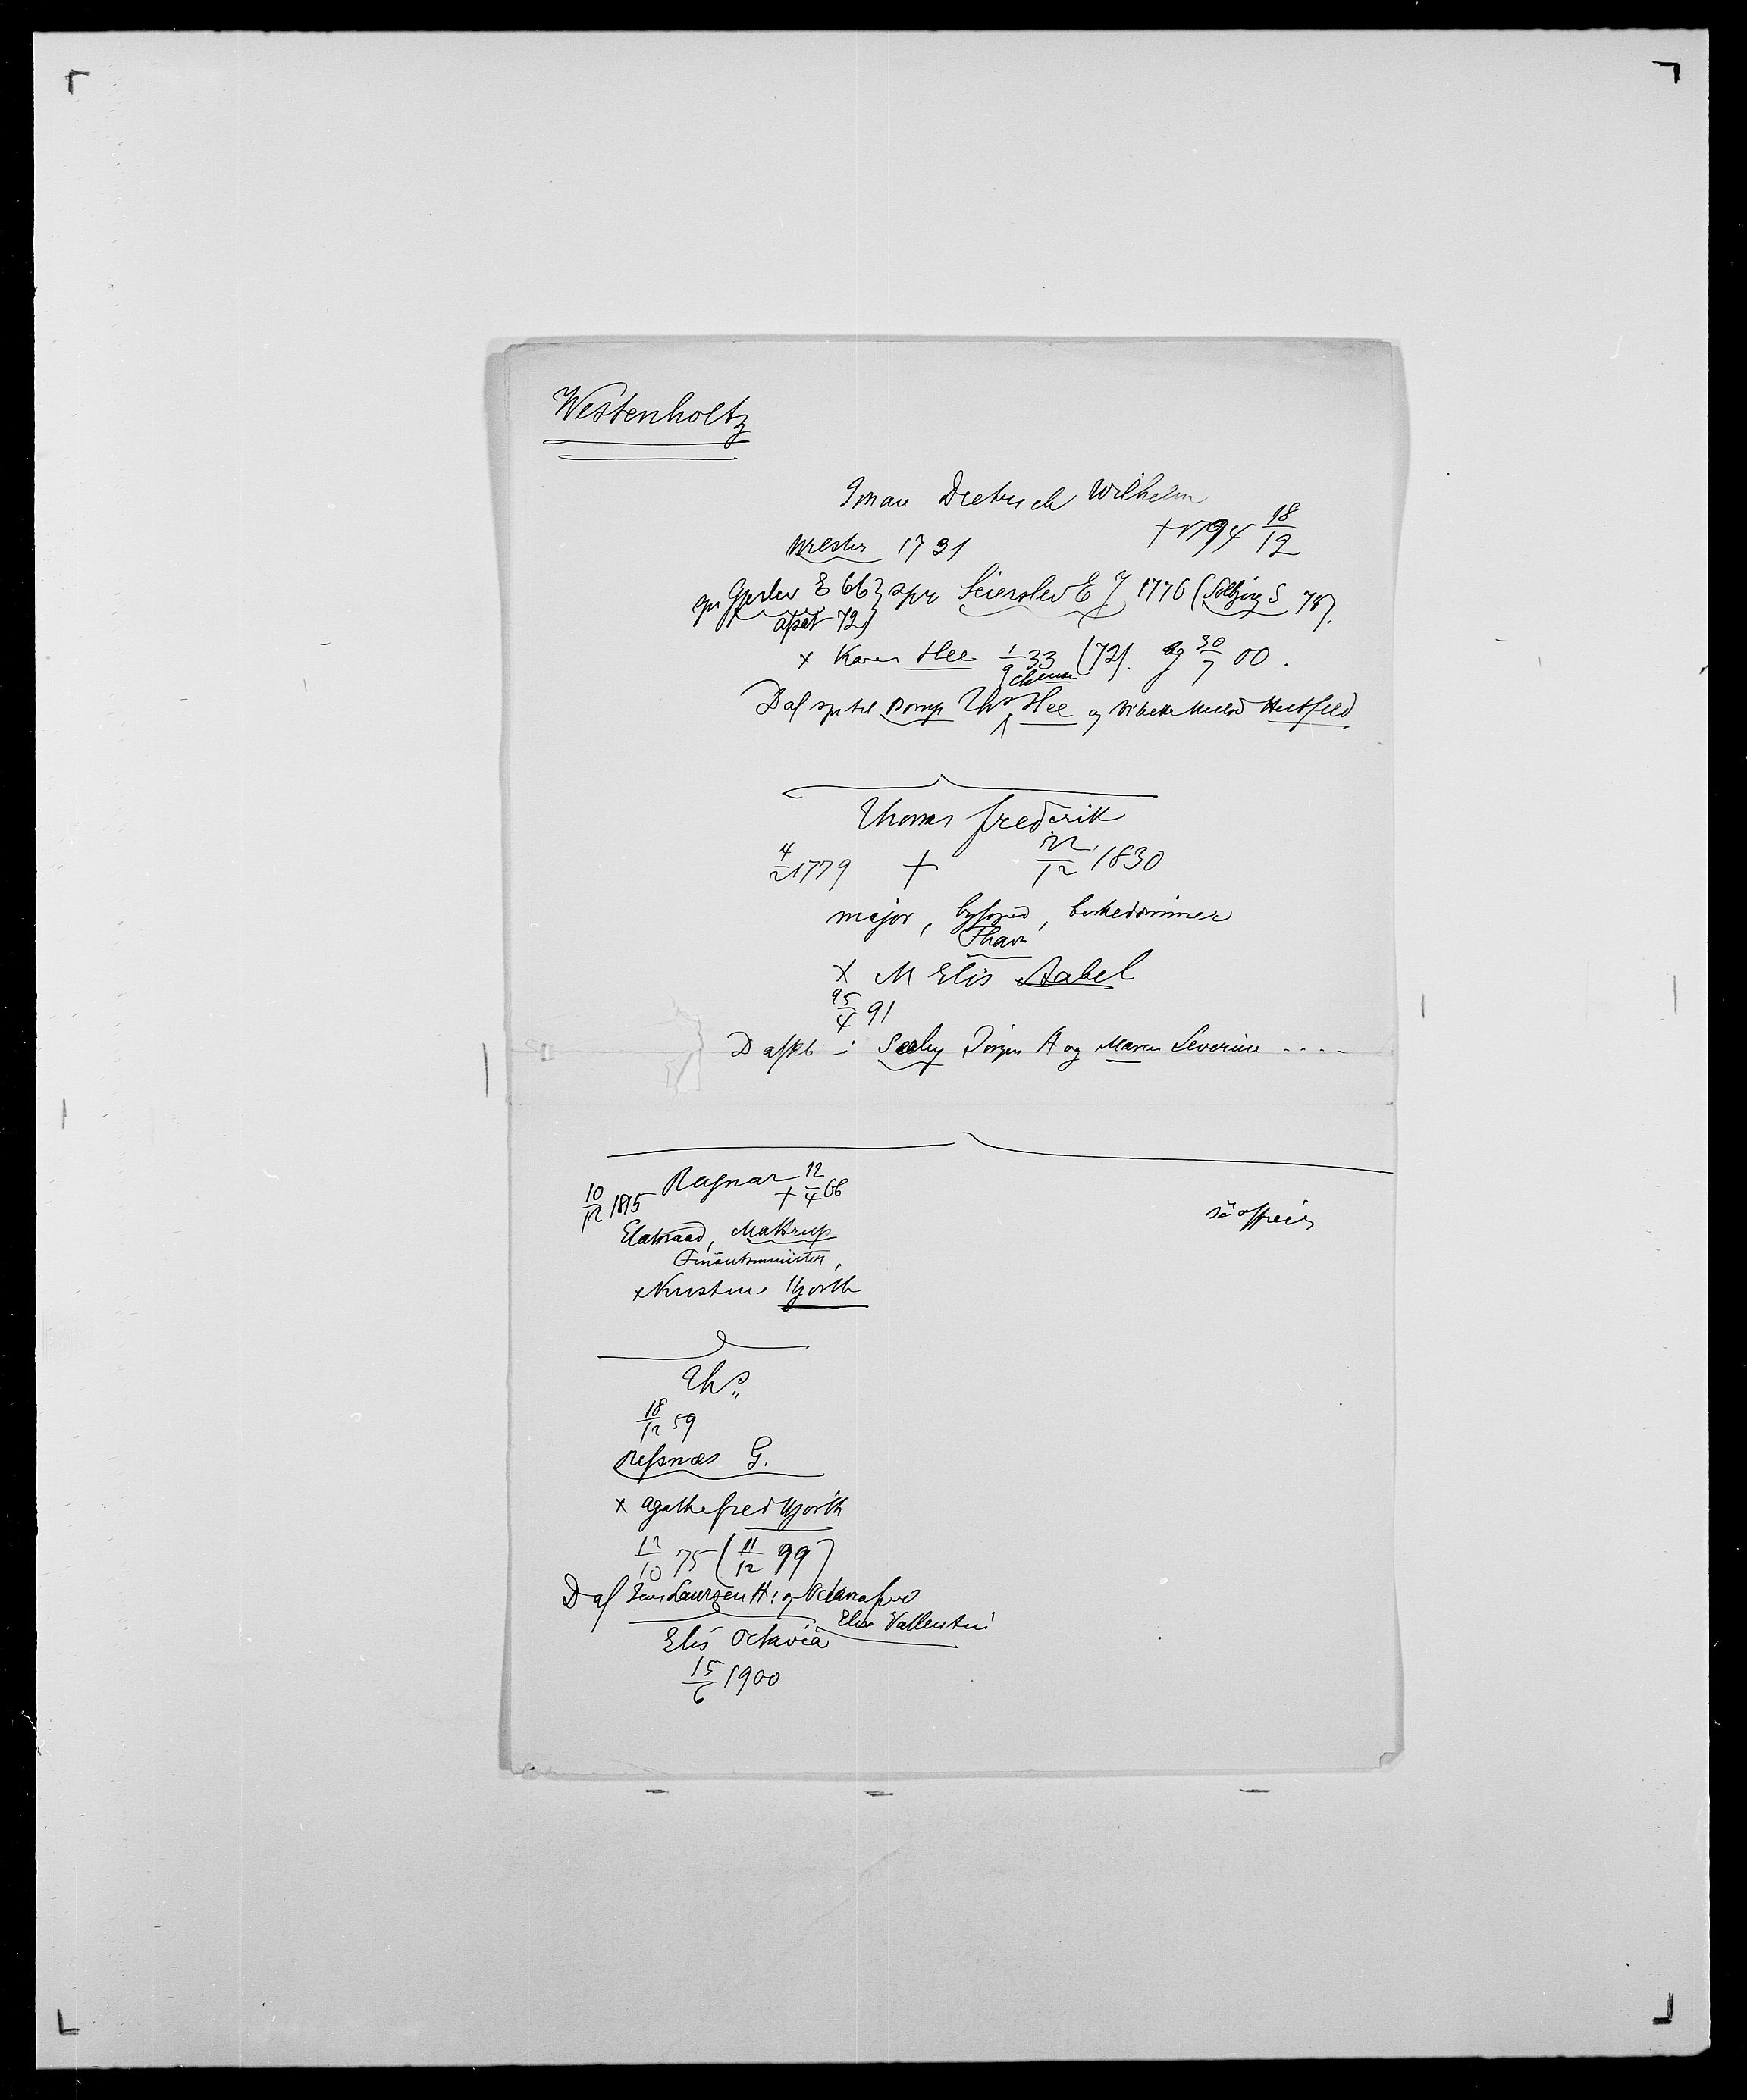 Westenholtz
Dietrich Wilhelm
Wilster 1731 † 1794 18/12
spr Gjerlev E 66} spr Seierslev E J 1776 (Soltjerg S 78).
afsat 72}
x Karen Hee 1/9 33 (72). bg 30/7 00.
D af spr til Dorup Ths Hee og Vibeke Nielsd Huitfeld
Thomas frederik
4/2 1779 † 22/12 1830
major, byfoged, birkedommer
Thavn
x M Elis Aabel
25/4 91
D af i Sæby Jörgen A og Maren Severine ....
Ragnar
10/12 1815 † 12/4 66
Etatsraad, Mattrup
Finantsminister,
x Kirstine Hjorth
söofficer
Ths
18/12 59
Refsnæs G.
x Agathe fred Hjorth
12/10 75 (11/12 99)
D af Jens Laursen H: og Octavia
Elise Vallentin
Elis Octavia
15/6 1900